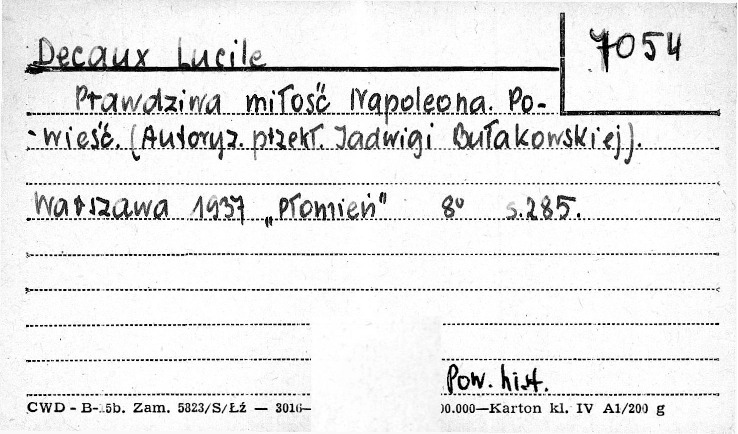 Decaux Lucile
7054
Prawdziwa miłość Napoleona. Po-
-wieść. (Autoryz. przekł. Jadwigi Bułakowskiej).
Warszawa 1937 „Płomień" 8º s.285.
Pow. hist.
CWD - B-15b. Zam. 5823/S/Łź — 3016— 00.000—Karton kl. IV A1/200 g